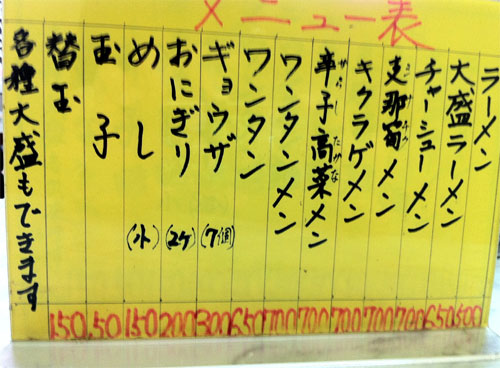 メニュー表
ラーメン 500
大盛ラーメン 650
チャーシューメン 700
支那筍メン 700
キクラゲメン 700
辛子高菜メン 700
からし たかな
ワンタンメン 700
ワンタン 650
ギョウザ(7個) 300
おにぎり(2ケ) 200
めし(小) 150
玉子 50
替玉 150
各種大盛もできます